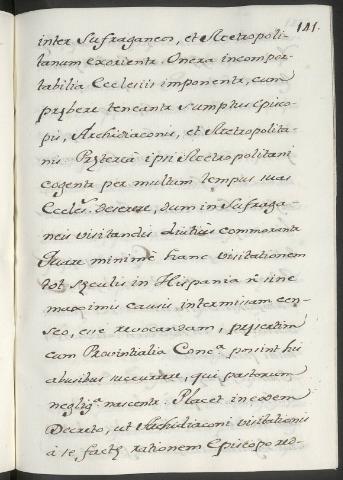 141.
inter Sufraganeos, et Metropoli-
tanum exorienta. Onera incompor-
tabilia Ecclesiis imponenta, cum
præbere teneanta sumptus Episco-
pis, Archidiaconis, et Metropolita-
nis. Præterea ipsi Metropolitani
cogenta per multum tempus suas
Eccles.s deserere, dum in Sufraga-
neis visitandis diutius commoranta
Quare minime hanc visitationem
tot sæculis in Hispania ñ sine
maximis causis intermissam cen-
seo, esse revocandam, præsertim
cum Provintialia Conc.a possint his
abusibus succurrere, qui pastorum
neglig.a nascenta. Placet in eodem
Decreto, ut Archidiaconi visitationis
à se factæ rationem Episcopo red-